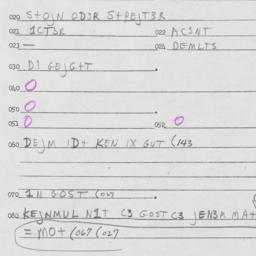 020 S+OJN ODJR S+PEJT3R
021 1CT3R 022 ACSNT
023 — 024 DEMLTS
030 D1 GEJG+T
040 O
050 O
051 O 052 O
060 DEJM 1D+ KEN IX GUT (143
070 1N GOST (067
080 KEJNMUL N1T C3 GOST C3 JEN3R MA+
= MO+ (067 (027